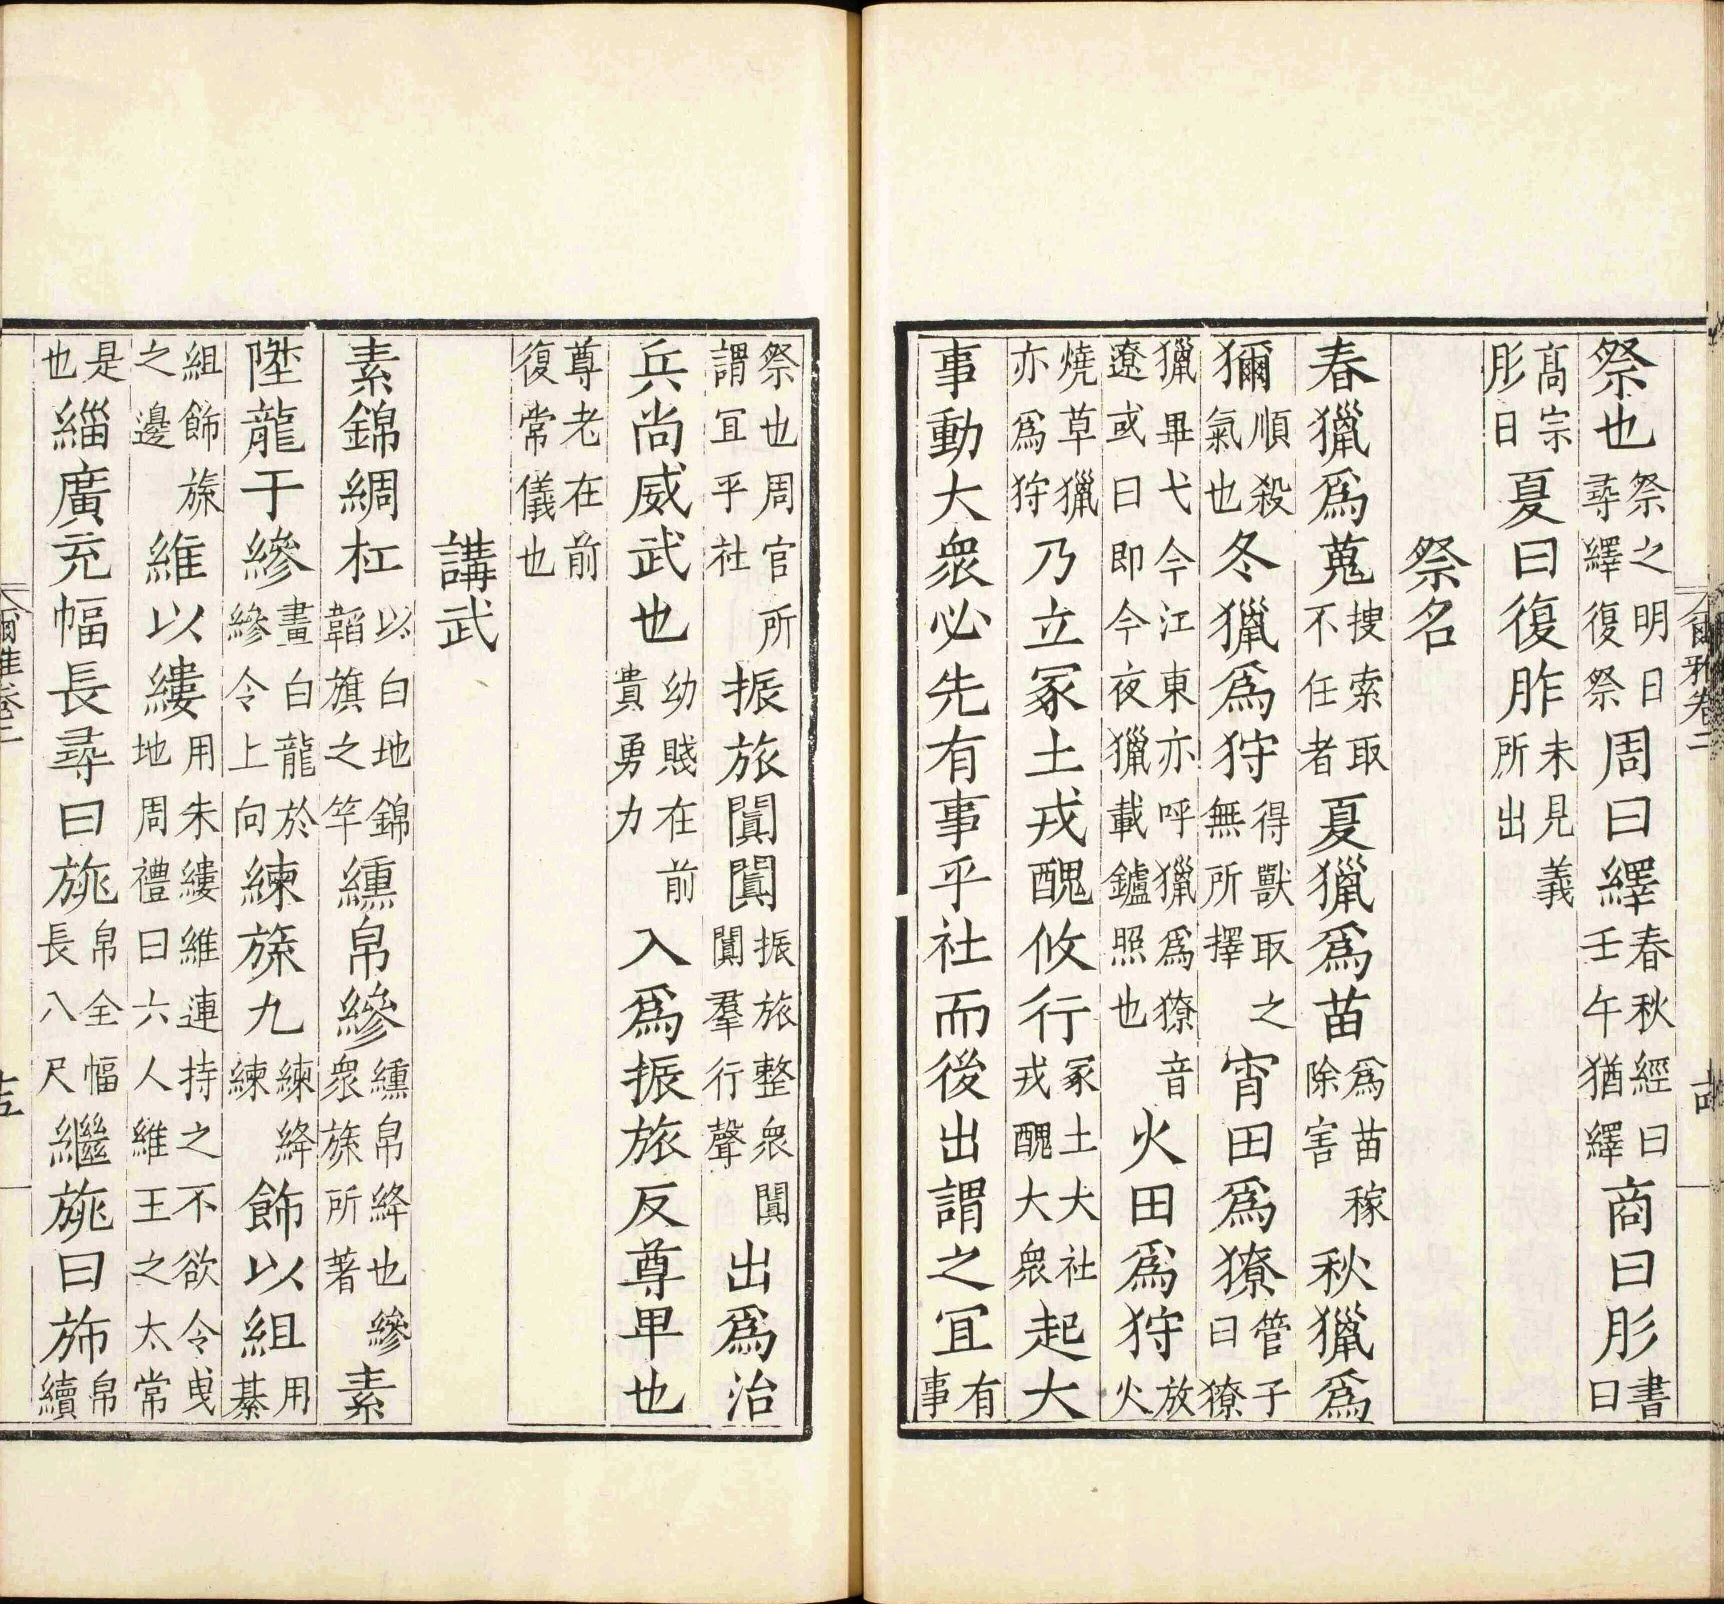 爾雅卷二
祭也祭之明日尋繹復祭周曰繹春秋經曰壬午猶繹商曰肜書曰
高宗肜日夏曰復胙未見義所出
祭名
春獵爲蒐搜索取不任者夏獵爲苗爲苗稼除害秋獵爲
獮順殺氣也冬獵爲狩得獸取之無所擇宵田爲獠管子曰獠
獵畢弋今江東亦呼獵爲獠音遼或曰即今夜獵載鑪照也火田爲狩放火
燒草獵亦爲狩乃立冢土戎醜攸行冢土大社戎醜大衆起大
事動大衆必先有事乎社而後出謂之宜有事
祭也周官所謂宜乎社振旅闐闐振旅整衆闐闐羣行聲出爲治
兵尚威武也幼賤在前貴勇力入爲振旅反尊卑也
尊老在前復常儀也
講武
素錦綢杠以白地錦韜旗之竿纁帛縿纁帛絳也縿衆旒所著素
陞龍于縿畫白龍於縿令上向練旒九練絳練飾以組用綦
組飾旒之邊維以縷用朱縷維連持之不欲令曳地周禮曰六人維王之太常
是也緇廣充幅長尋曰旐帛全幅長八尺繼旐曰斾帛續
爾雅卷二
十五